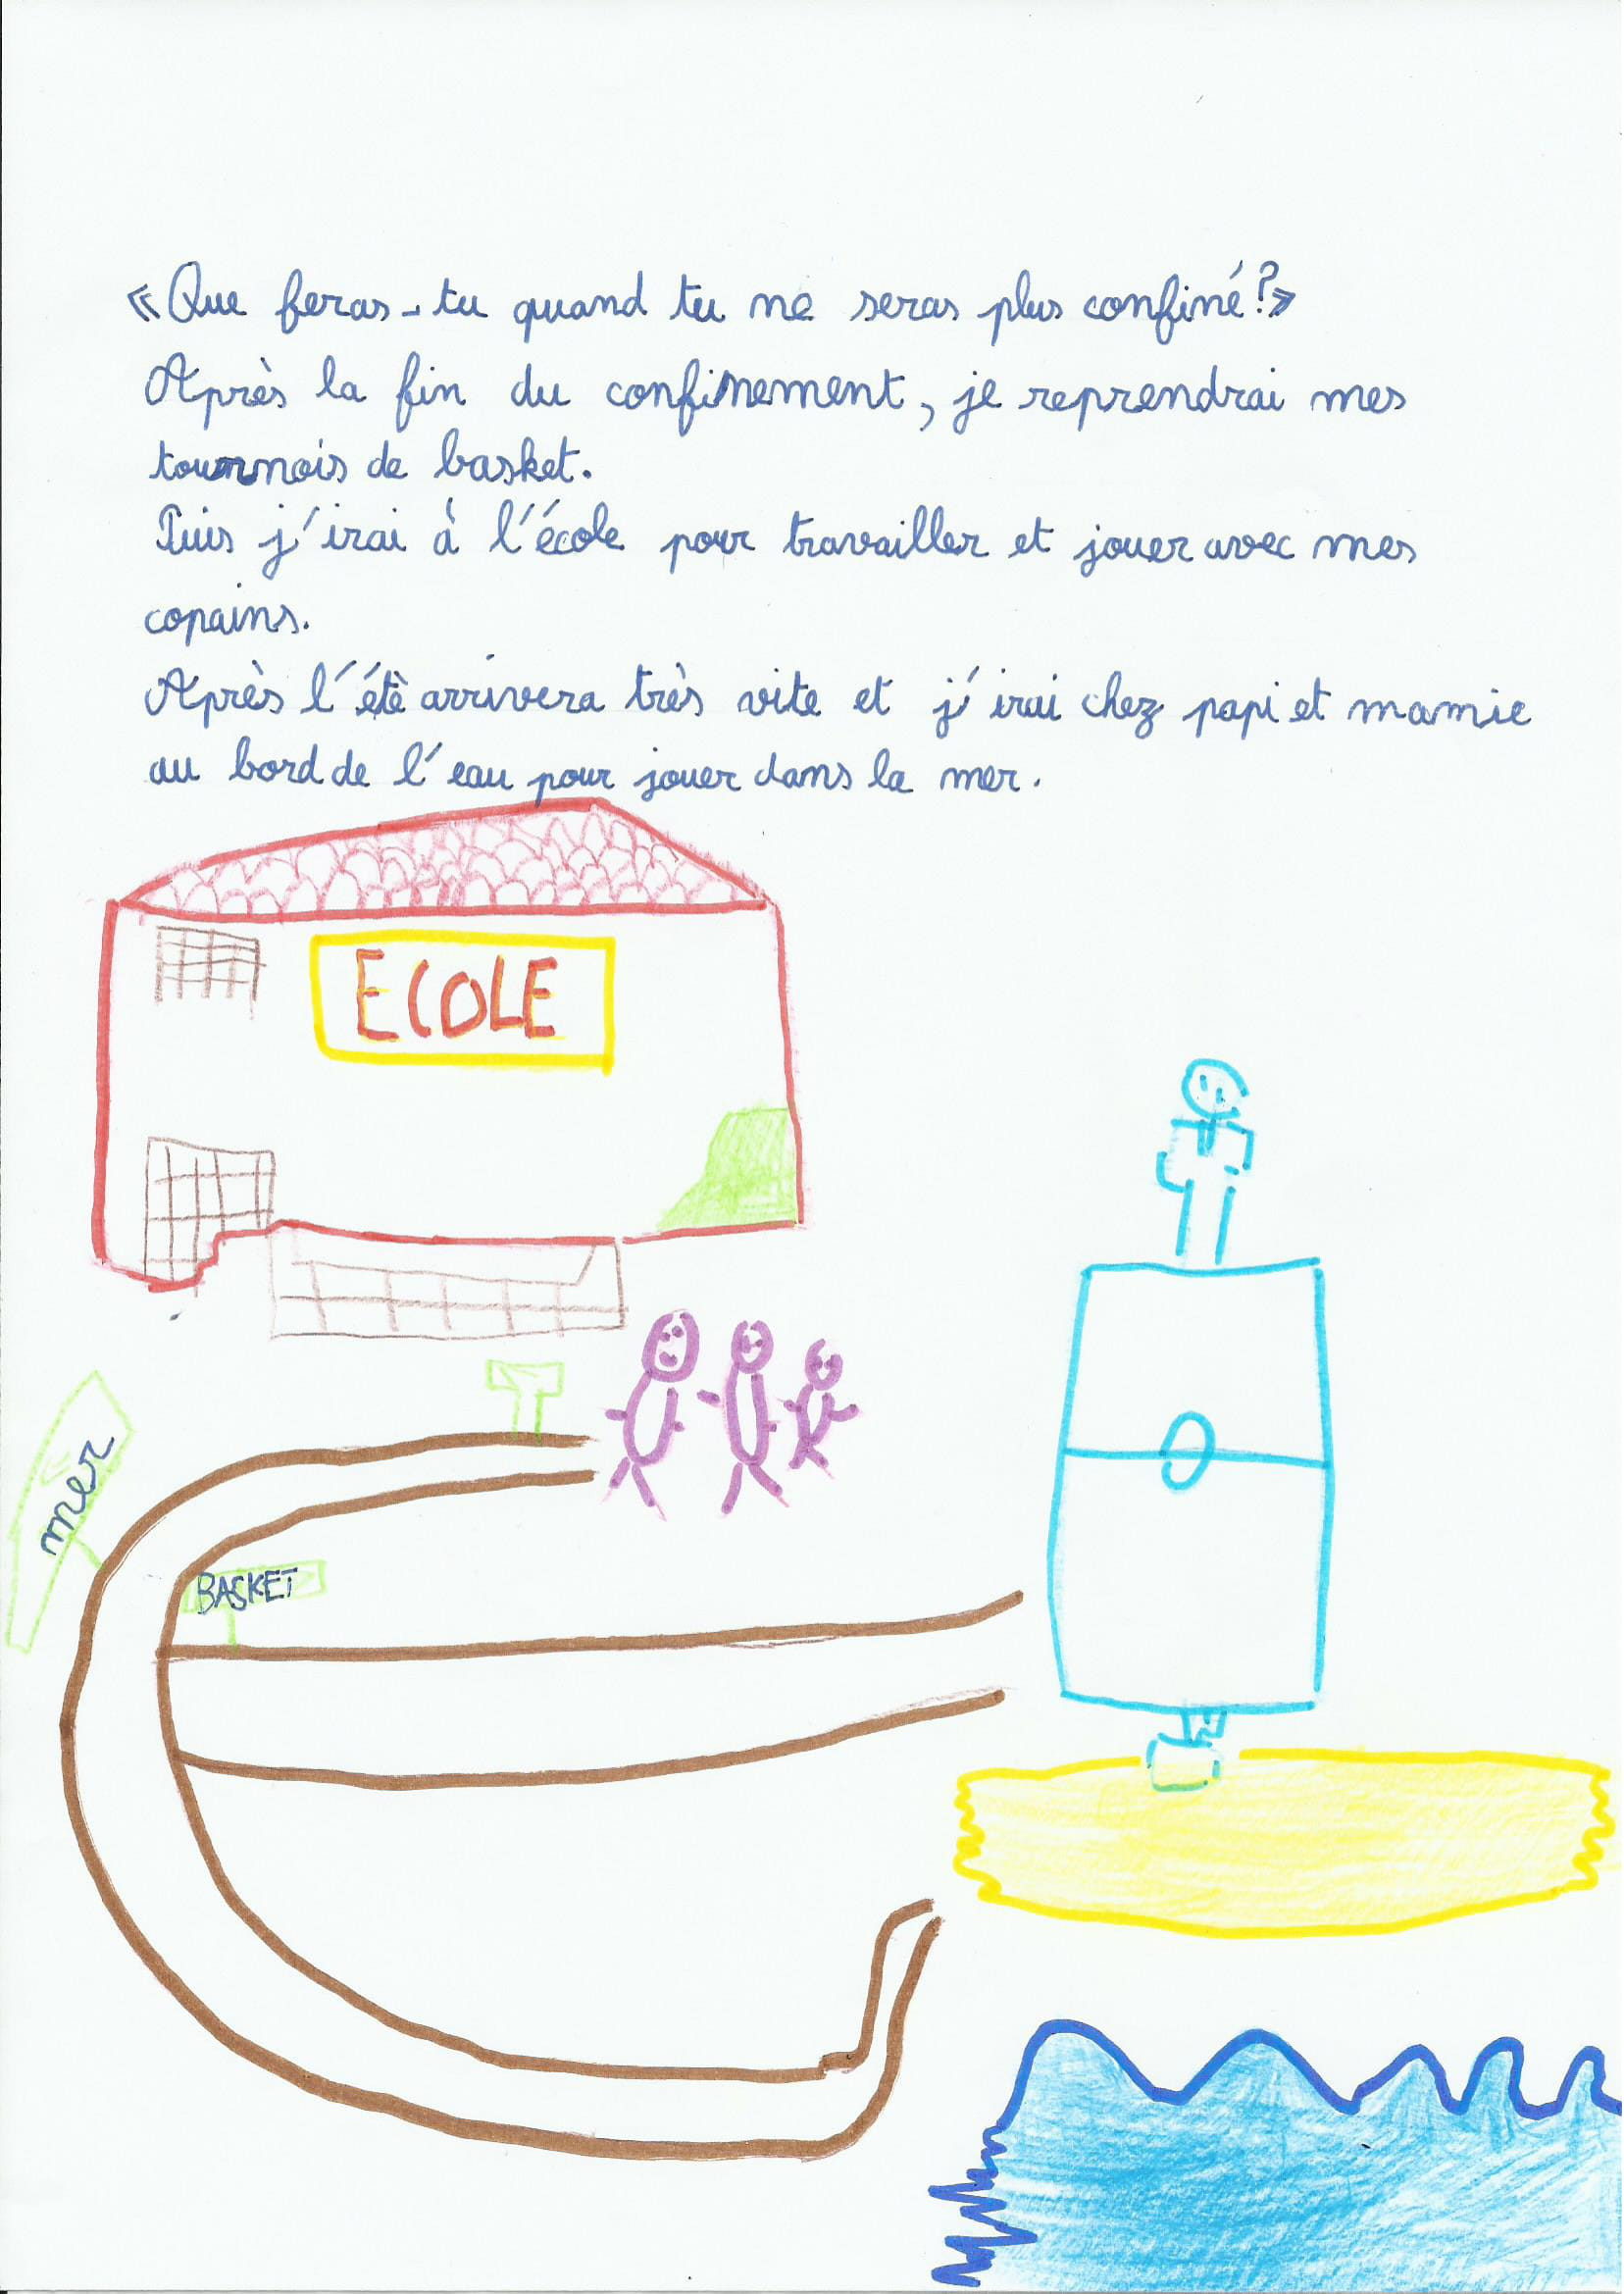 «Que feras-tu quand tu ne seras plus confiné?»
Après la fin du confinement, je reprendrai mes
tournois de basket.
Puis j'irai à l'école pour travailler et jouer avec mes
copains.
Après l'étè arrivera très vite et j'irai chez papi et mamie
au bord de l'eau pour jouer dans la mer.
ECOLE
mer
BASKET